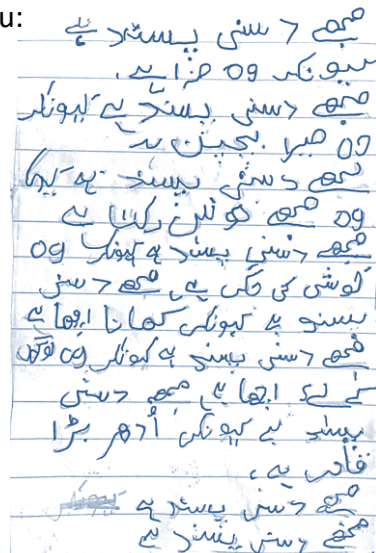 u:
مجھے دسنی پسند ہے
کیونکہ وہ مزا ہے.
مجھے دسنی پسند ہے کیونکہ
وہ میرا بچپن ہے
مجھے دسنی پسند ہے کیونکہ
وہ مجھے خوش رکتا ہے
مجھے دسنی پسند ہے کیونکہ وہ
کوشی کی جگہ ہے، مجھے دسنی
پسند ہے کیونکہ کھانا اچھا ہے
مجھے دسنی پسند ہے کیونکہ وہ لوگوں
کے لیے اچھا ہے مجھے دسنی
پسند ہے کیونکہ اُدھر بڑا
ہے،
مجھے دسنی پسند ہے
مجھے دسنی پسند ہے